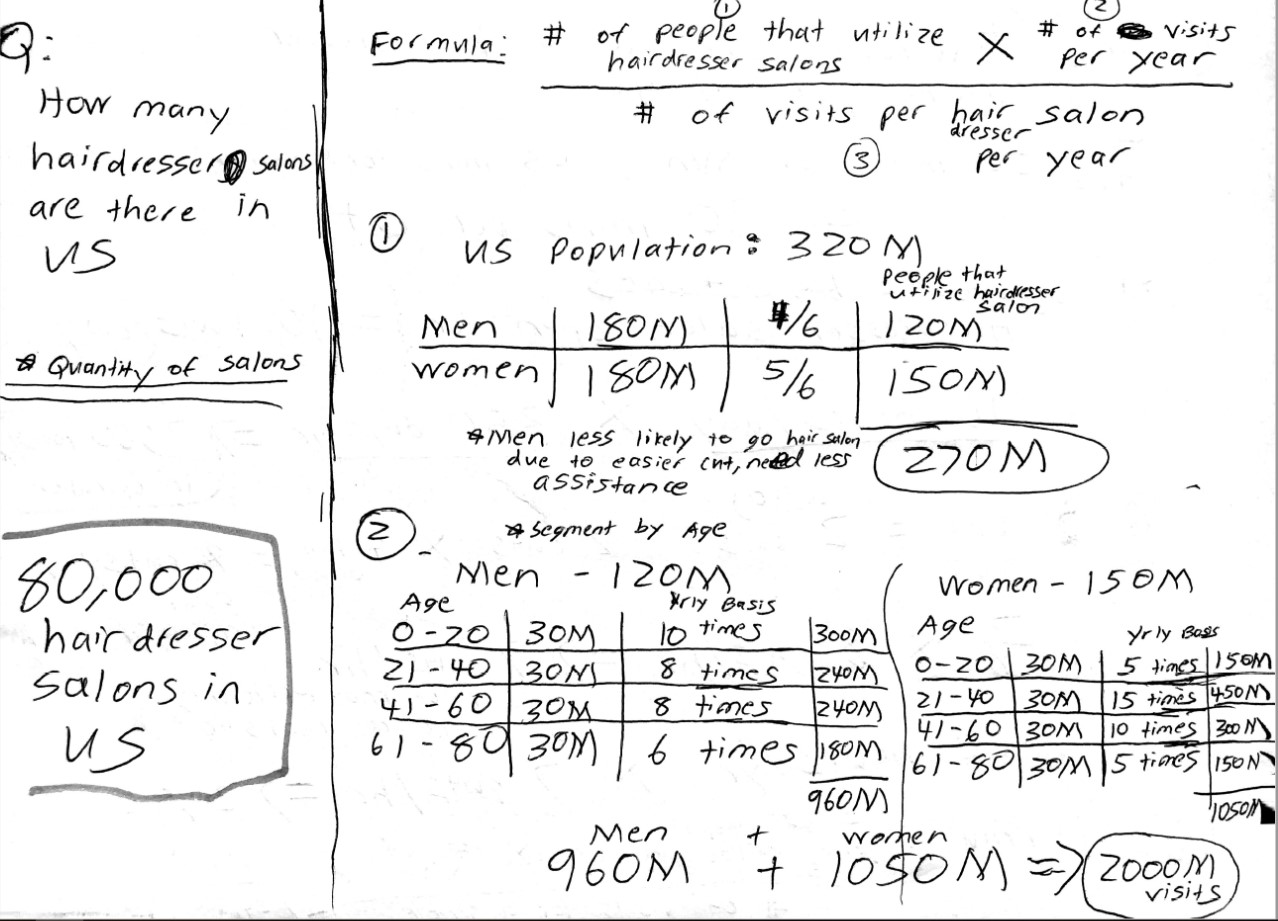 Q:
How many
hairdresser salons
are there in
US
* Quantity of salons
80,000
hairdresser
salons in
US
① ②
Formula: # of people that utilize hairdresser salons X # of visits per year
# of visits per hair dresser salon
③ per year
① US Population: 320M
People that
utilize hairdresser
salon
Men 180M /6 120M
women 180M 5/6 150M
270M
*Men less likely to go hair salon
due to easier cut, need less
assistance
② *Segment by Age
Men - 120M
Age Yrly Basis
0-20 30M 10 times 300M
21-40 30M 8 times 240M
41-60 30M 8 times 240M
61-80 30M 6 times 180M
960M
Women - 150M
Age Yrly Basis
0-20 30M 5 times 150M
21-40 30M 15 times 450M
41-60 30M 10 times 300M
61-80 30M 5 times 150M
1050M
Men + women
960M + 1050M => 2000M
visits